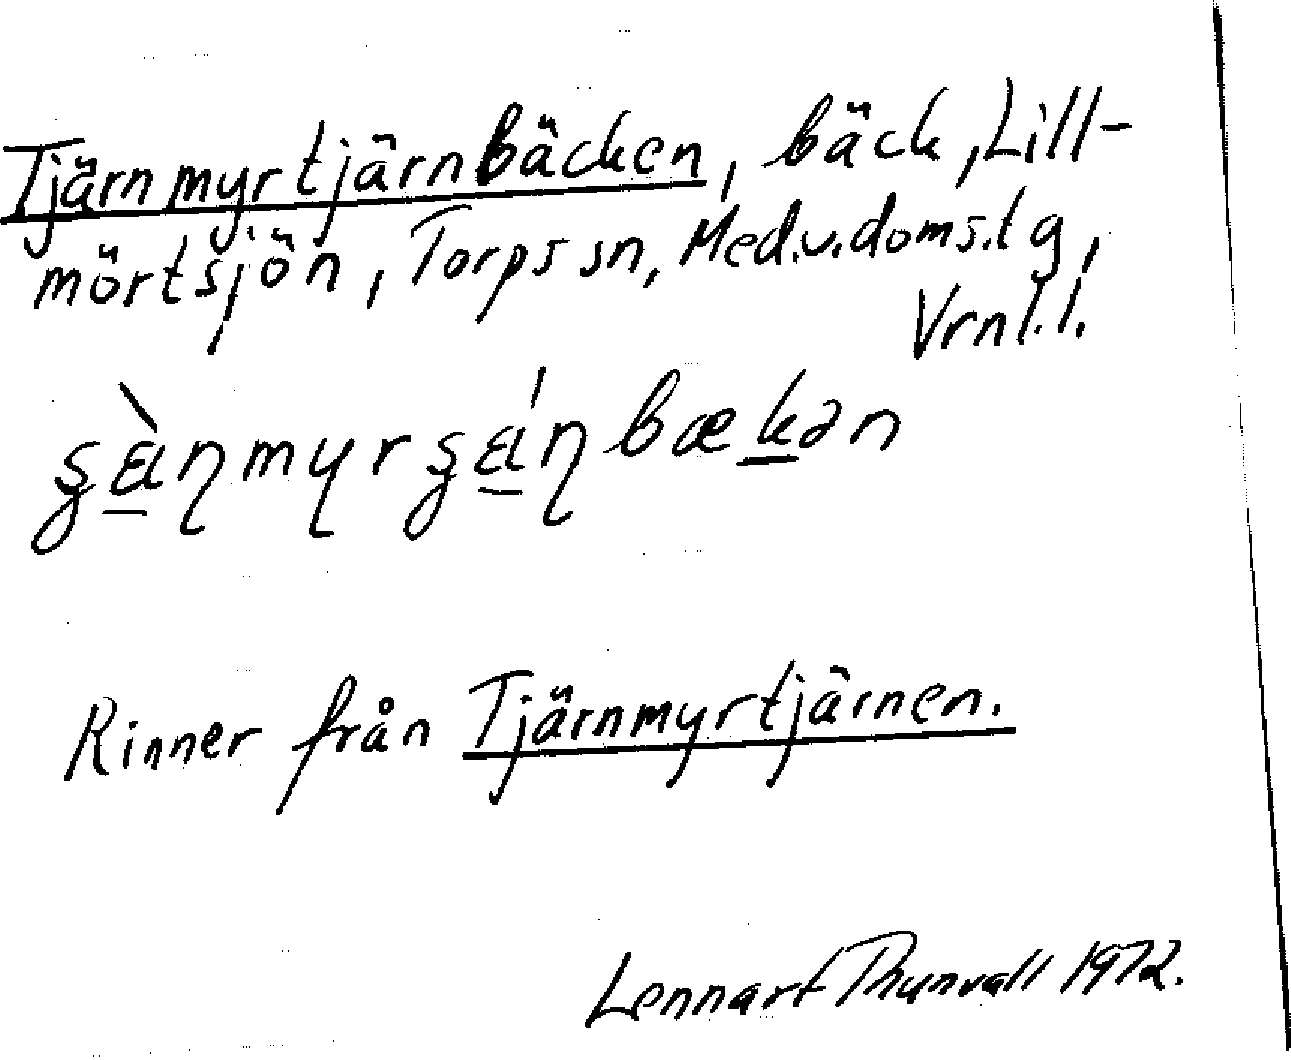 Tjärnmyrtjärnbäcken, bäck, Lill-
mörtsjön, Torps sn, Med.v.doms.tg,
Vrnl.l.
Rinner från Tjärnmyrtjärnen.
Lennart Thunvall 1972.